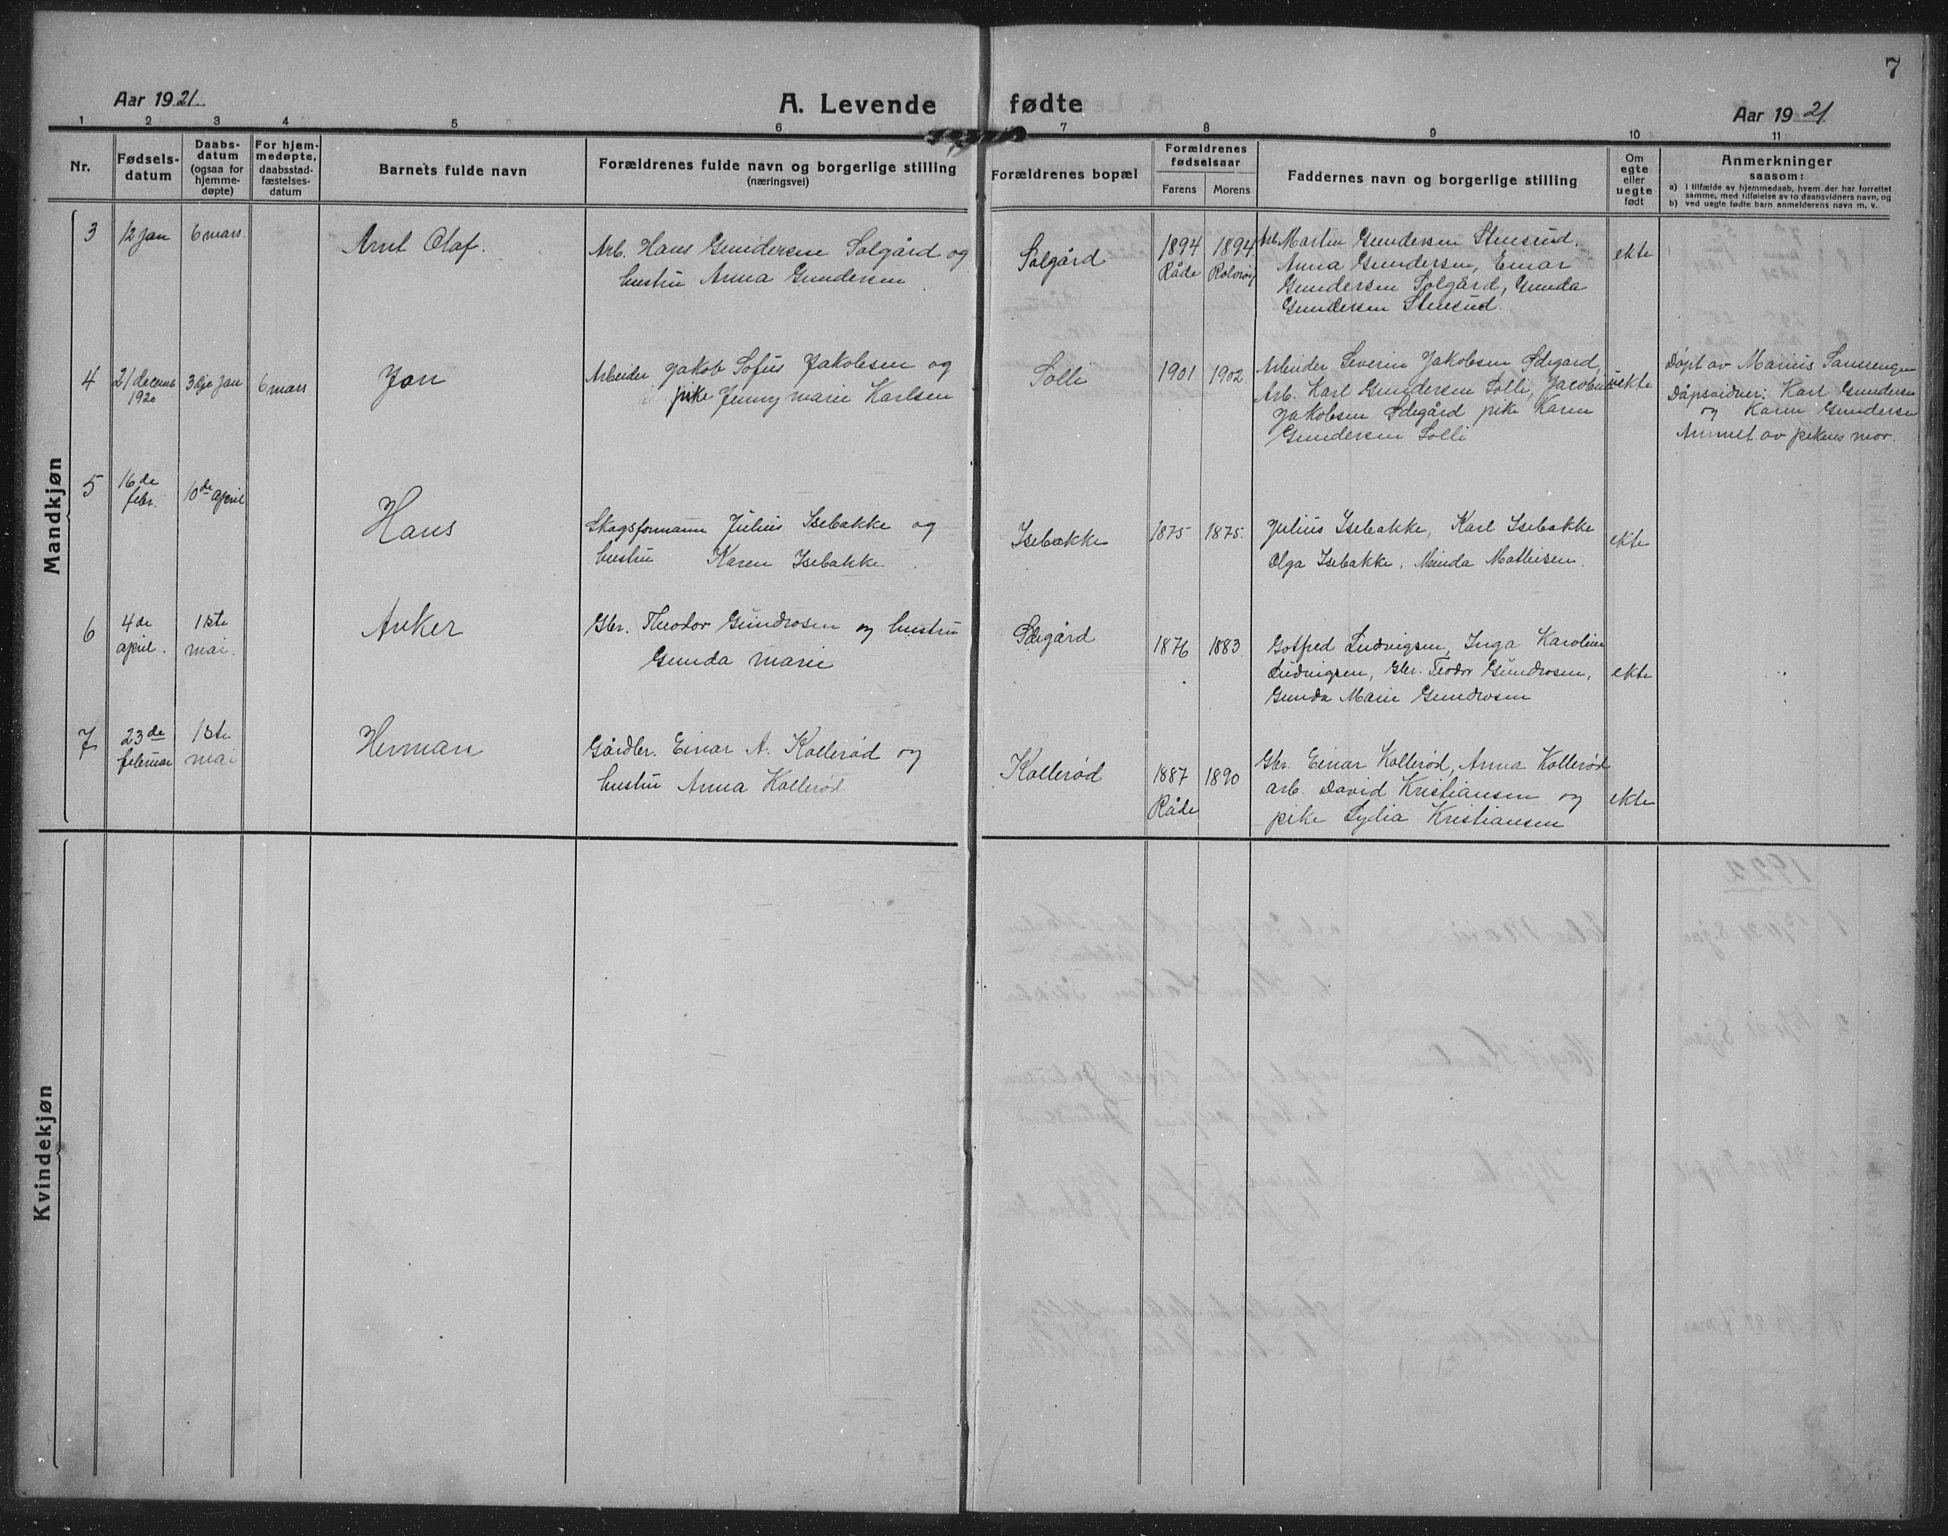 7
Aar 1921
A. Levende fødte
Aar 1921
1 2 3 4 5 6 7 8 9 10 11
Nr.
Fødsels-
datum
Daabs-
datum
(ogsaa for
hjemme-
døpte)
For hjem-
medøpte,
daabsstad-
fæstelses-
datum
Barnets fulde navn
Forældrenes fulde navn og borgerlige stilling
(næringsvei)
Forældrenes bopæl
Forældrenes
fødselsaar
Farens Morens
Faddernes navn og borgerlige stilling
Om
egte
eller
uegte
født
Anmerkninger
saasom:
a) i tilfælde av hjemmedaab, hvem der har forrettet
samme, med tilføielse av to daabsvidners navn, og
b) ved uegte fødte barn anmelderens navn m. v.
Mandkjøn
3
12 jan
6 mars
Arnt Olaf.
Arb. Hans Gundersen Solgård og
hustru Anna Gundersen
Solgård
1894
Råde
1894
Rolvsøy
Arb. Martin Gundersen Stensrud.
Anna Gundersen, Einar
Gundersen Solgård, Gunda
Gundersen Stensrud.
ekte
4
21 decemb
1920
3dje jan
6 mars
Jon
Arbeider Jakob Sofus Jakobsen og
pike Jenny Marie Karlsen
Solli
1901
1902
Arbeider Severin Jakobsen Ødegård,
Arb. Karl Gundersen Solli,
Jakobsen Ødegård pike Karen
Gundersen Solli
uekte
Døpt av Marius
Dåpsvidner: Karl Gundersen
og Karen Gundersen
Anmelt av pikens mor.
5
16de
febr.
10de april
Hans
Skogsformann Julius Isebakke og
hustru Karen Isebakke.
Isebakke
1875
1875.
Julius Isebakke, Karl Isebakke
Olga Isebakke, Minda Mathisen.
ekte
6
4de
april.
1ste
mai.
Anker
Gbr. Theodor Gundrosen og hustru
Gunda Marie
Ødegård
1876
1883
Gotfred Ludvigsen, Inga Karoline
Ludvigsen, Gbr. Teodor Gundrosen,
Gunda Marie Gundrosen
ekte
7
23de
februar
1ste
mai
Herman
Gårdbr. Einar A. Kollerød og
hustru Anna Kollerød
Kollerød
1887
Råde
1890
Gbr. Einar Kollerød, Anna Kollerød
arb. David Kristiansen og
pike Lydia Kristiansen
ekte
Kvindekjøn